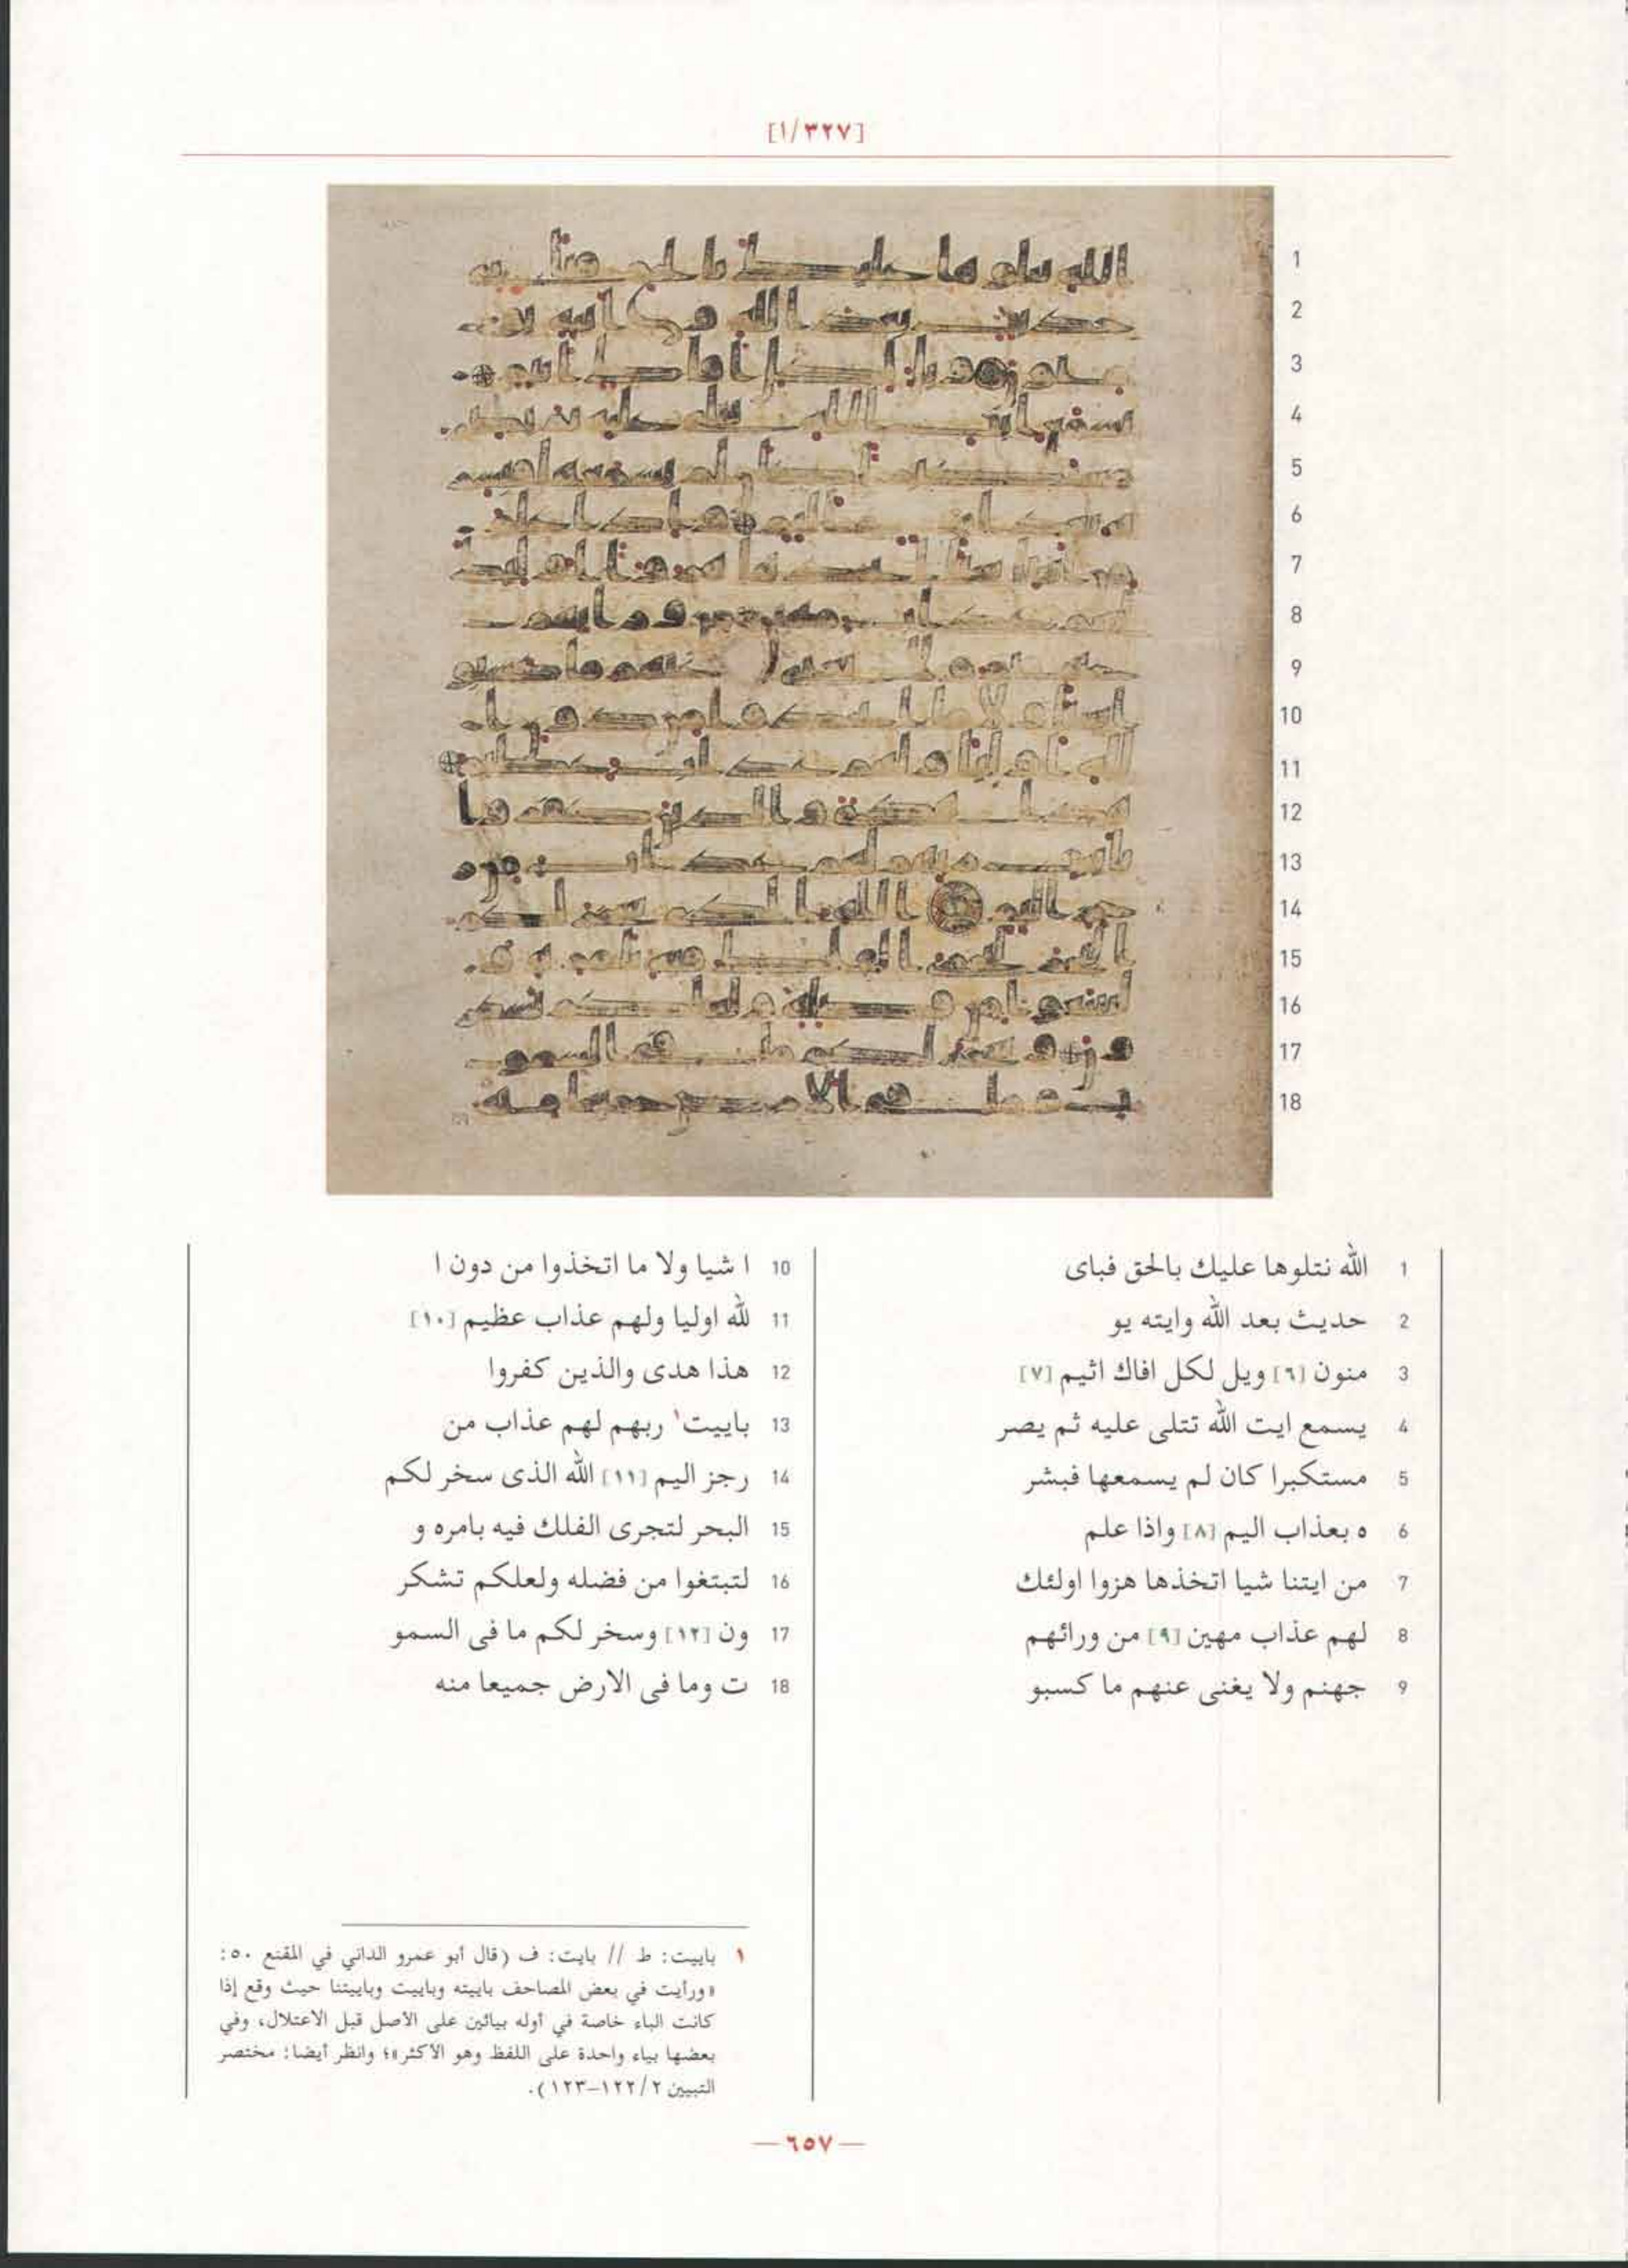 [٣٢٧/١]
1 الله نتلوها عليك بالحق فباى
2 حديث بعد الله وايته يو
3 منون [٦] ويل لكل افاك اثيم [٧]
4 يسمع ايت الله تتلى عليه ثم يصر
5 مستكبرا كان لم يسمعها فبشر
6 ه بعذاب اليم [٨] واذا علم
7 من ايتنا شيا اتخذها هزوا اولئك
8 لهم عذاب مهين [٩] من ورائهم
9 جهنم ولا يغنى عنهم ما كسبو
10 ا شيا ولا ما اتخذوا من دون ا
11 لله اوليا ولهم عذاب عظيم [١٠]
12 هذا هدى والذين كفروا
13 باييت١ ربهم لهم عذاب من
14 رجز اليم [١١] الله الذى سخر لكم
15 البحر لتجرى الفلك فيه بامره و
16 لتبتغوا من فضله ولعلكم تشكر
17 ون [١٢] وسخر لكم ما فى السمو
18 ت وما فى الارض جميعا منه
١ باييت: ط // بايت: ف (قال أبو عمرو الداني في المقنع ٥٠:
«ورأيت في بعض المصاحف باييته وباييت وباييتنا حيث وقع إذا
كانت الباء خاصة في أوله بيائين على الأصل قبل الاعتلال، وفي
بعضها بياء واحدة على اللفظ وهو الأكثر»؛ وانظر أيضا: مختصر
التبيين ١٢٢/٢–١٢٣).
— ٦٥٧ —